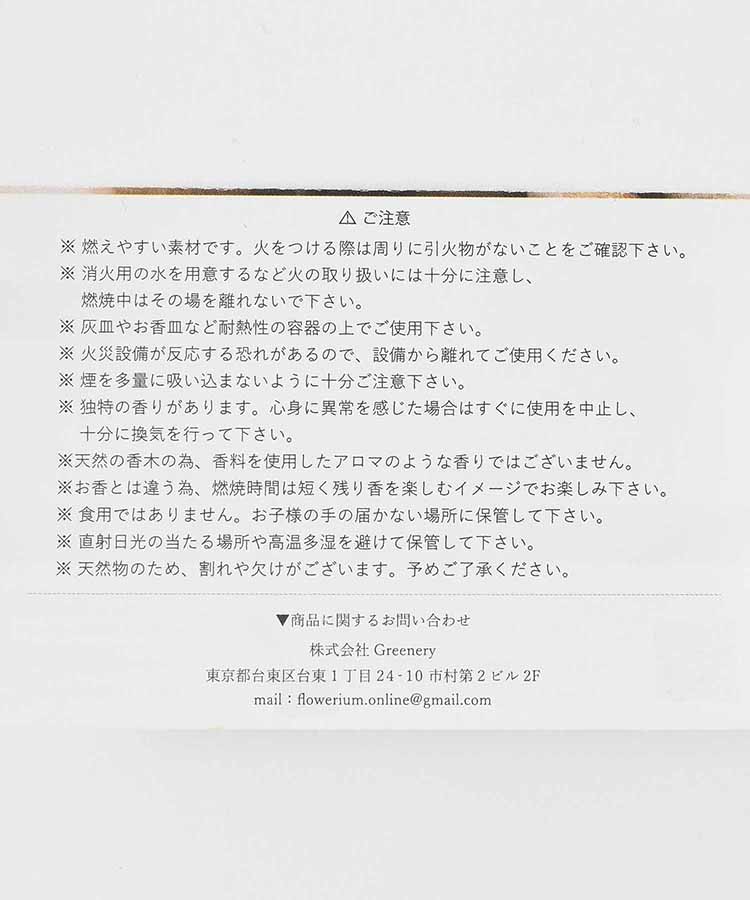 ⚠ ご注意
※ 燃えやすい素材です。火をつける際は周りに引火物がないことをご確認下さい。
※ 消火用の水を用意するなど火の取り扱いには十分に注意し、
燃焼中はその場を離れないで下さい。
※ 灰皿やお香皿など耐熱性の容器の上でご使用下さい。
※ 火災設備が反応する恐れがあるので、設備から離れてご使用ください。
※ 煙を多量に吸い込まないように十分ご注意下さい。
※ 独特の香りがあります。心身に異常を感じた場合はすぐに使用を中止し、
十分に換気を行って下さい。
※天然の香木の為、香料を使用したアロマのような香りではございません。
※お香とは違う為、燃焼時間は短く残り香を楽しむイメージでお楽しみ下さい。
※ 食用ではありません。お子様の手の届かない場所に保管して下さい。
※ 直射日光の当たる場所や高温多湿を避けて保管して下さい。
※ 天然物のため、割れや欠けがございます。予めご了承ください。
▼商品に関するお問い合わせ
株式会社 Greenery
東京都台東区台東1丁目24-10 市村第2ビル2F
mail：flowerium.online@gmail.com